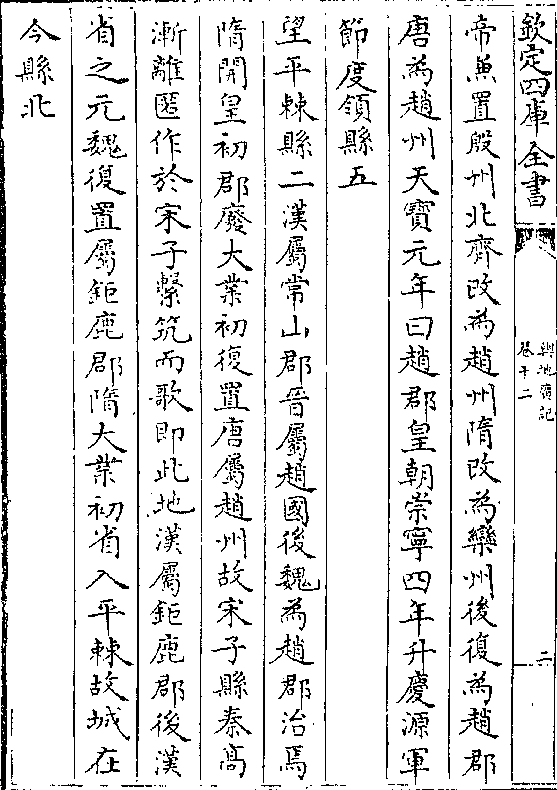 欽定四庫全書
輿地廣記
卷十二
二
帝兼置殷州北齊改為趙州隋改為欒州後復為趙郡
唐為趙州天寶元年曰趙郡皇朝崇寧四年升慶源軍
節度領縣五
望平棘縣二漢屬常山郡晉屬趙國後魏為趙郡治焉
隋開皇初郡廢大業初復置唐屬趙州故宋子縣秦髙
漸離匿作於宋子繫筑而歌即此地漢屬鉅鹿郡後漢
省之元魏復置屬鉅鹿郡隋大業初省入平棘故城在
今縣北